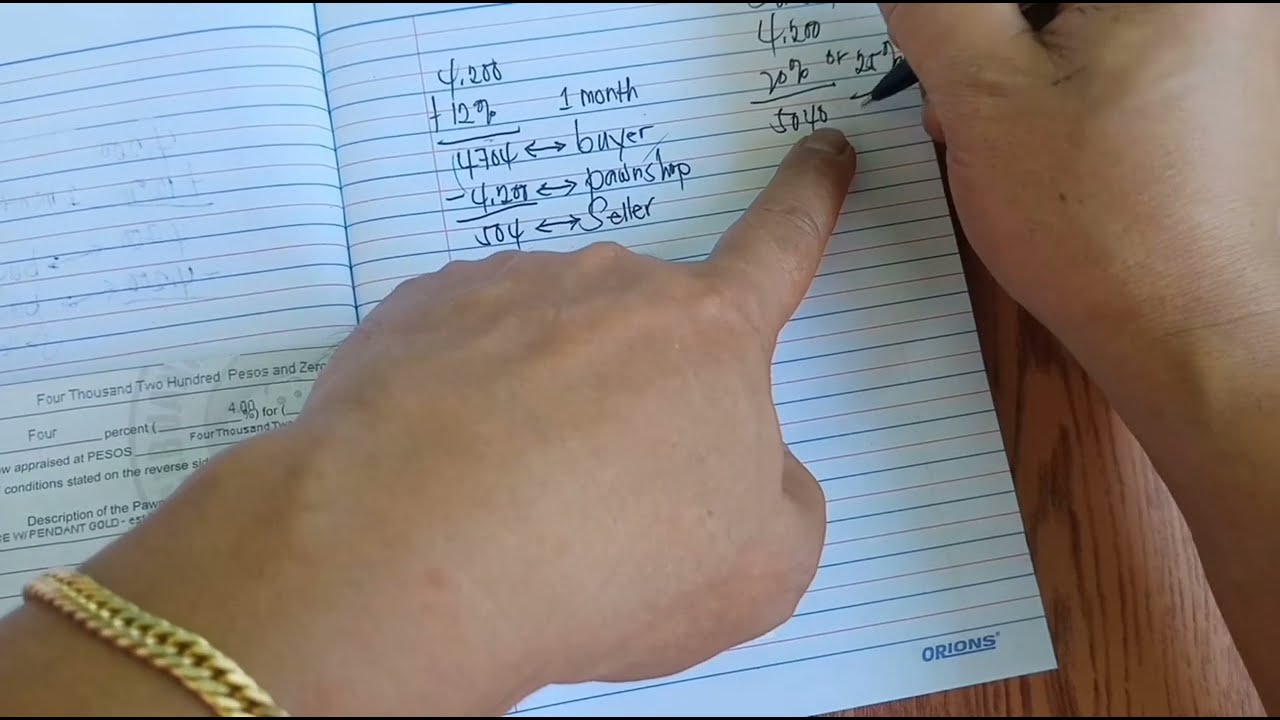 4.200
+12% 1 month
4704 ↔ buyer
- 4.200 ↔ pawnshop
504 ↔ Seller
4.200
20% or 25%
5040
Four Thousand Two Hundred Pesos and Zero
Four percent ( 4.00 %) for (
Four Thousand Two
appraised at PESOS
conditions stated on the reverse
Description of the Pawn
W/PENDANT GOLD -
ORIONS